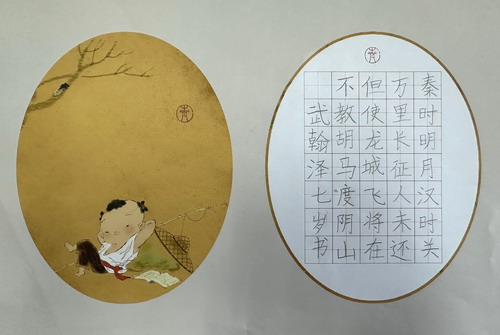 秦时明月汉时关
万里长征人未还
但使龙城飞将在
不教胡马渡阴山
武翰泽七岁书